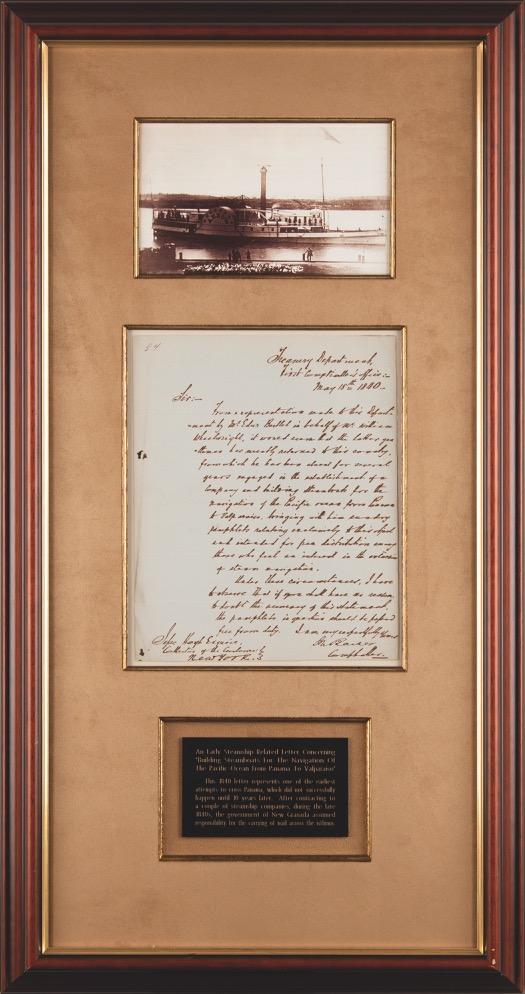 54
Treasury Department,
First Comptroller's Office:-
May 18th 1840-
Sir:-
From a representation made to this Depart-
ment by Mr in behalf of Mr William
Wheelwright, it would seem that the latter gen
tleman has recently returned to this country,
from which he has been absent for several
years engaged in the establishment of a
Company and building steamboats for the
navigation of the Pacific ocean from Panama
to Valparaiso, bringing with him sundry
pamphlets relating exclusively to this
and intended for free distribution among
those who feel an interest in the
of steam navigation.
Under these circumstances, I have
to observe that if you shall have no reason
to doubt the accuracy of this statement,
the pamphlets in question should be passed
free from duty. I am very respectfully Yours
Jesse Hoyt Esquire,
Collector of the Customs
New York.
Comptroller.
An Early Steamship Related Letter Concerning
"Building Steamboats For The Navigation Of
The Pacific Ocean From Panama To Valparaiso"
This 1840 letter represents one of the earliest
attempts to cross Panama, which did not successfully
happen until 10 years later. After contracting to
a couple of steamship companies, during the late
1840s, the government of New Granada assumed
responsibility for the carrying of mail across the isthmus.